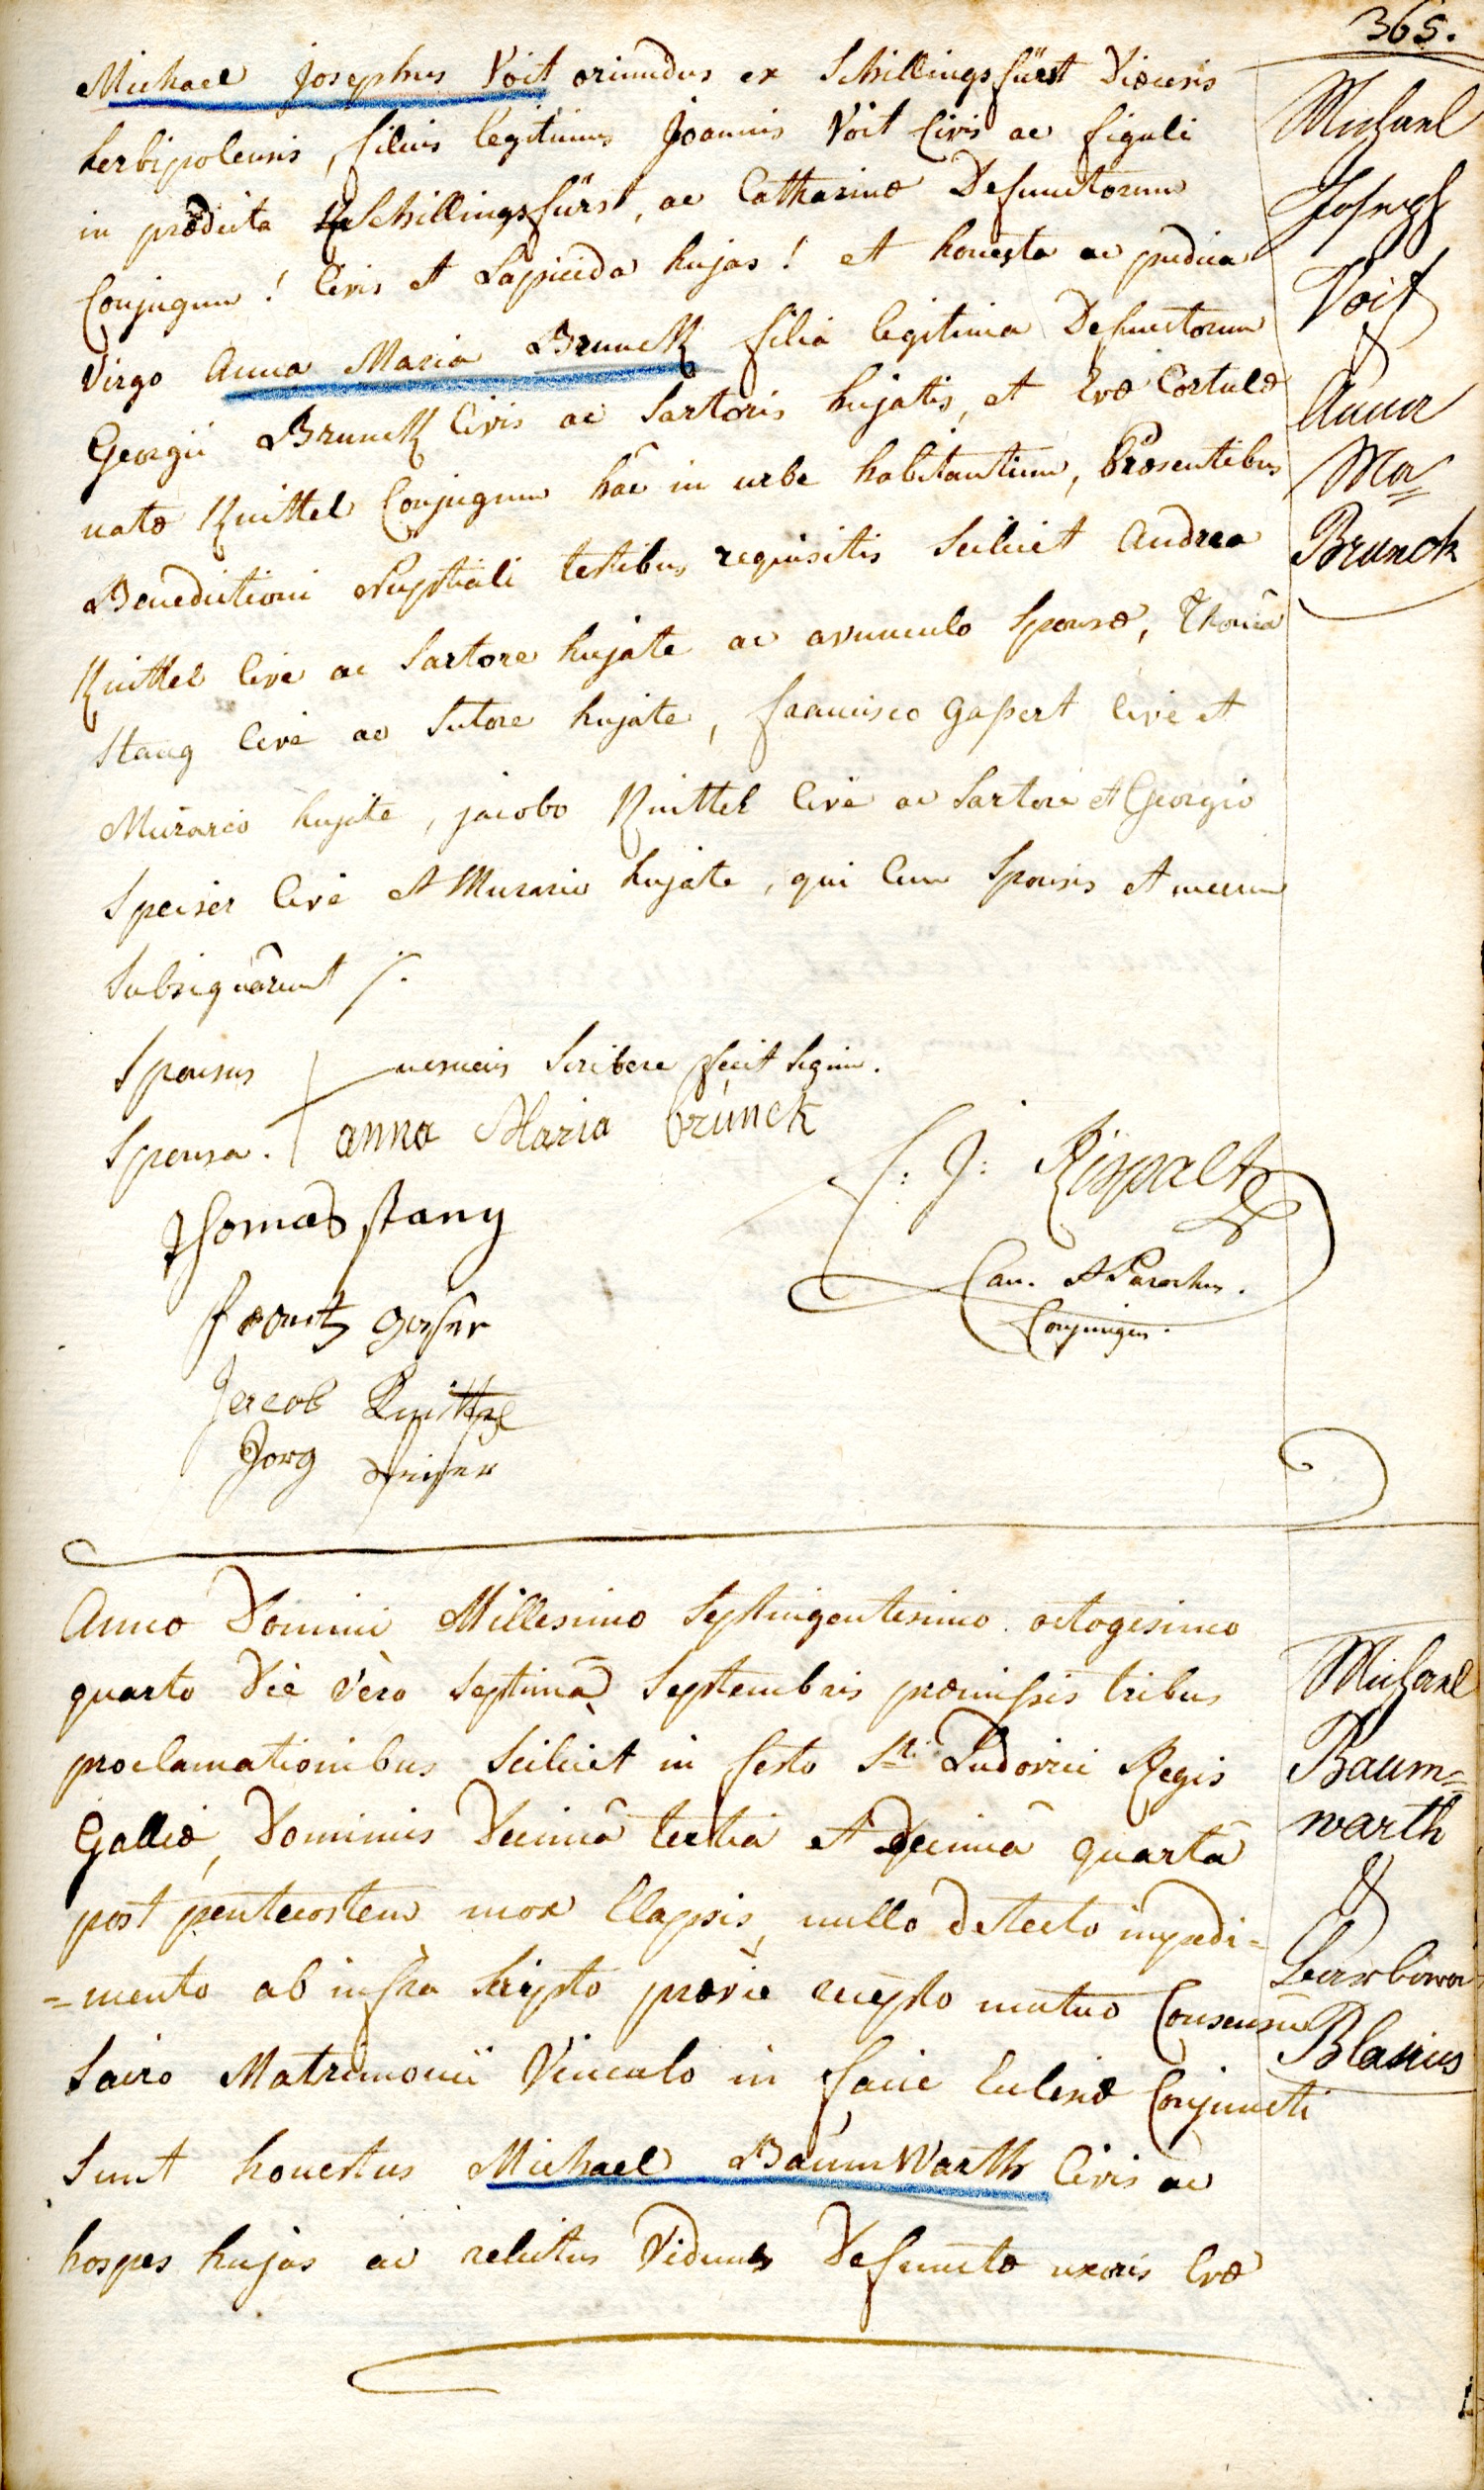 365.
Michael Josephus Voit oriundus ex Schillingsfürst Diœcesis
herbipolensis, filius legitimus Joannis Voit Civis ac figuli
in prædicta Schillingsfürst, ac Catharinæ Defunctorum
Conjugum! Civis et Lapicida hujas! et honesta ac pudica
Virgo Anna Maria Brunck filia legitima Defunctorum
Georgii Brunck Civis ac Sartoris hujatis, et Evæ Cortulæ
natæ Knittel Conjugum hâc in urbe habitantium, Præsentibus
Benedictioni Nuptiali testibus requisitis Scilicet Andrea
Knittel Cive ac Sartore hujate ac avunculo Sponsæ, Thomâ
Stang Cive ac Sutore hujate, francisco Gaßert Cive et
Murario hujate, jacobo Knittel Cive ac Sartore et Georgio
Speiser Cive et Murario hujate, qui Cum Sponsis et mecum
Subsignârunt /.
Sponsus nescius Scribere fecit Signum.
Sponsa. anna Maria brúnck
Thomas stang
frantz gasser
Jacob Knittel
Jorg
J: Rispalt
Can. et Parochus.
Conjungens.
Michael
Joseph
Voit
&
Anna
Ma=
Brunck
Anno Domini Millesimo Septingentesimo octogesimo
quarto Die vero Septimâ Septembris præmißis tribus
proclamationibus Scilicet in festo Sti Ludovici Regis
Galliæ, Dominicis Decimâ tertiâ et Decimâ quartâ
post pentecosten mox Elapsis, nullo detecto impedi=
=mento ab infra Scripto prævie recepto mutuo Consensu
Sacro Matrimonii Vinculo in facie Eclesiæ Conjuncti
Sunt honestus Michael Baúmwarth Civis ac
hospes hujas ac relictus Viduus Defunctæ uxoris Evæ
Michael
Baum=
warth
&
Barbara
Blasius